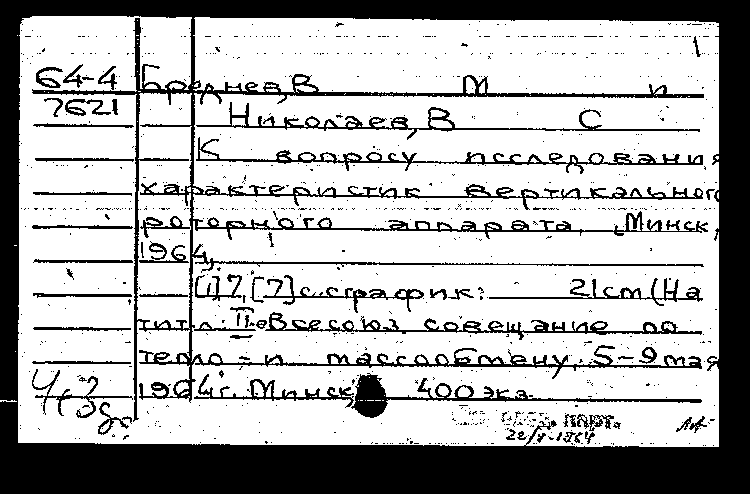 1
64-4 Бреднев, В М и
7621 Николаев, В С
К вопросу исследования
характеристик вертикального
роторного аппарата, Минск,
1964,
[1], 7, [7] с. с график: 21cm (На
тит. л: II-е Всесоюз. совещание по
тепло- и массообмену, 5-9 мая
1964 г. Минск 400 экз.
22/V-1964